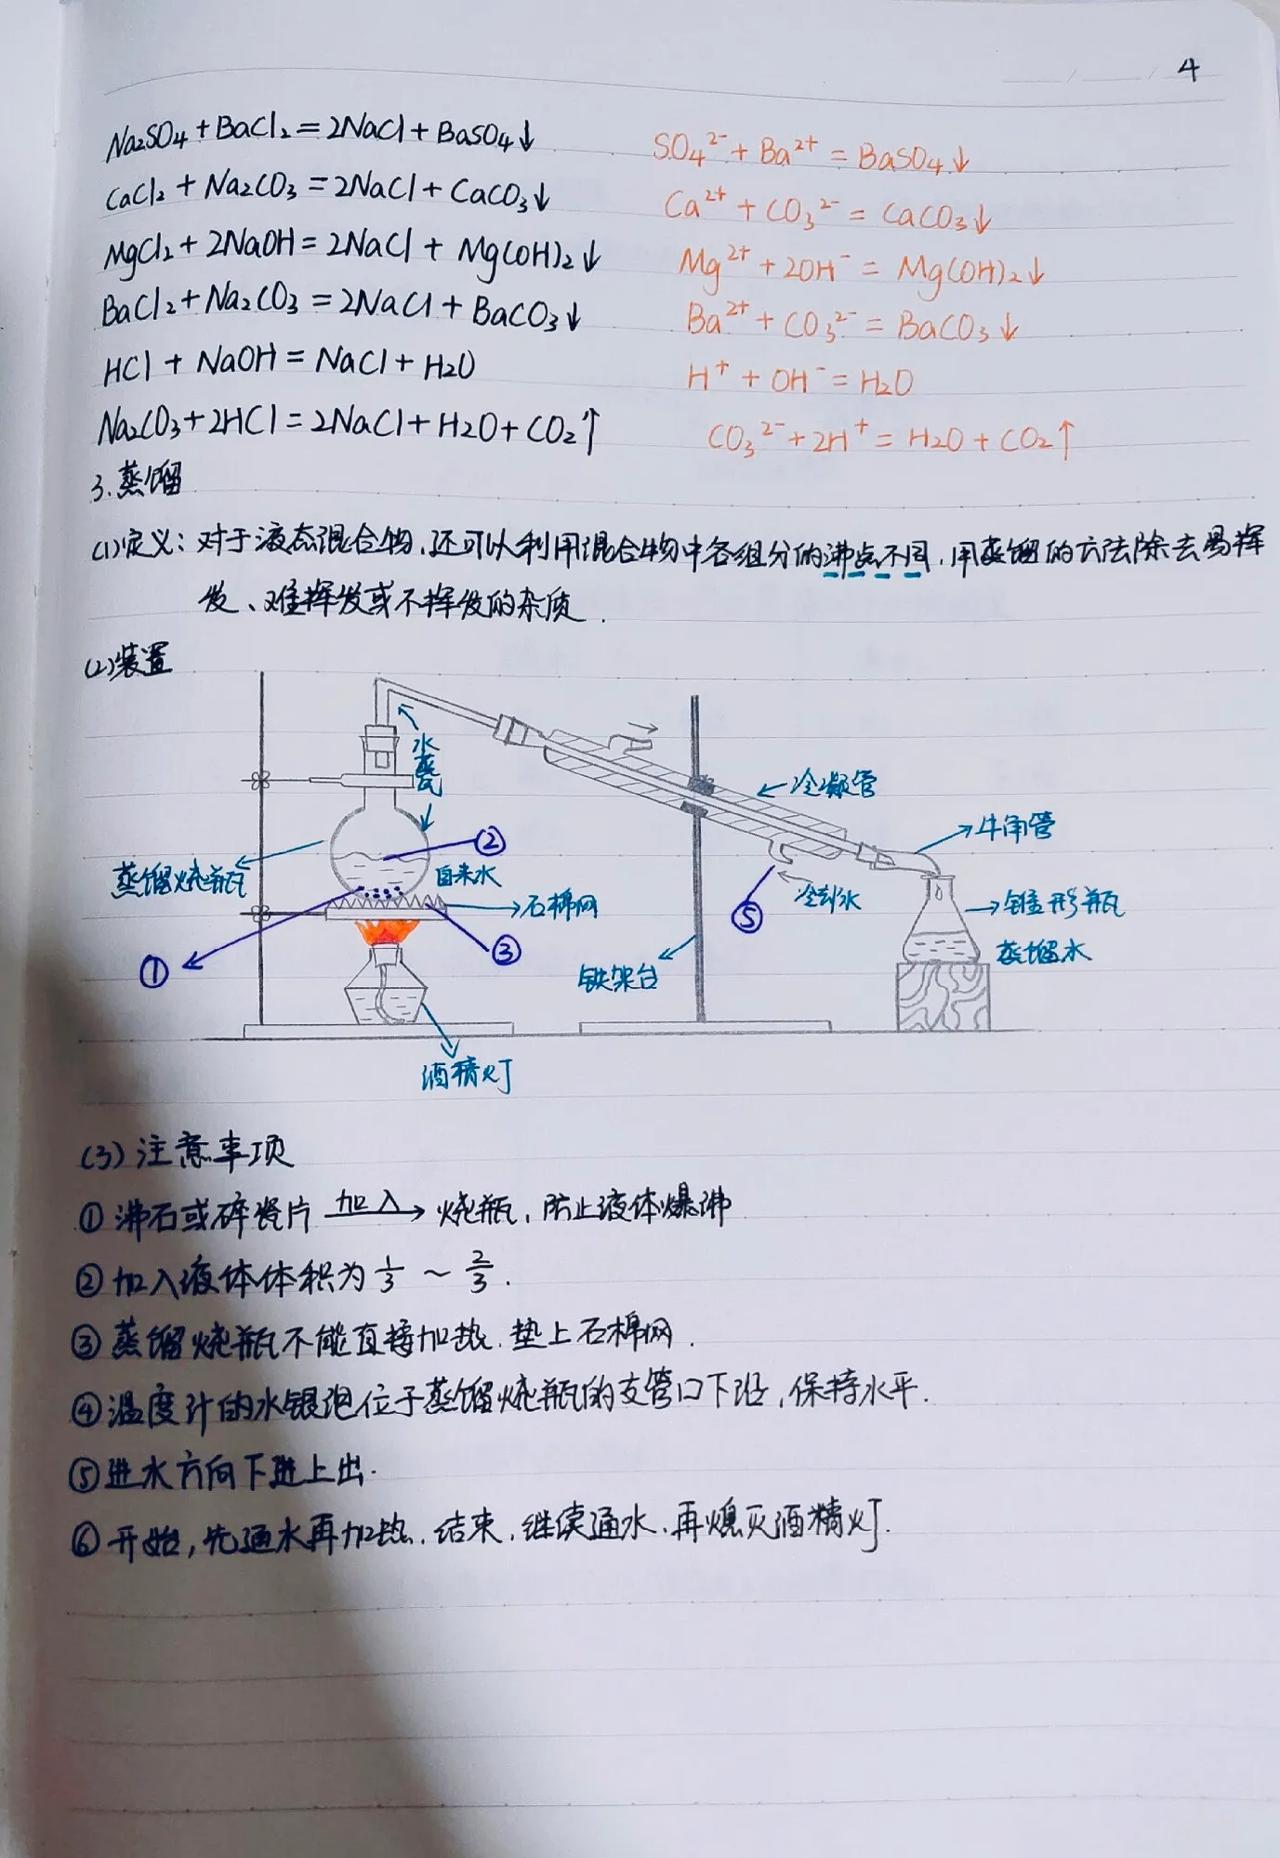 4
Na₂SO₄+BaCl₂=2NaCl+BaSO₄↓ SO₄²⁻+Ba²⁺=BaSO₄↓
CaCl₂+Na₂CO₃=2NaCl+CaCO₃↓ Ca²⁺+CO₃²⁻=CaCO₃↓
MgCl₂+2NaOH=2NaCl+Mg(OH)₂↓ Mg²⁺+2OH⁻=Mg(OH)₂↓
BaCl₂+Na₂CO₃=2NaCl+BaCO₃↓ Ba²⁺+CO₃²⁻=BaCO₃↓
HCl+NaOH=NaCl+H₂O H⁺+OH⁻=H₂O
Na₂CO₃+2HCl=2NaCl+H₂O+CO₂↑ CO₃²⁻+2H⁺=H₂O+CO₂↑
3.蒸馏
(1)定义:对于液态混合物,还可以利用混合物中各组分的沸点不同,用蒸馏的方法除去易挥
发、难挥发或不挥发的杂质.
(2)装置
水蒸气
冷凝管
牛角管
②
蒸馏烧瓶
自来水
石棉网
冷却水
⑤
锥形瓶
①
③
蒸馏水
铁架台
酒精灯
(3)注意事项
①沸石或碎瓷片 加入→ 烧瓶,防止液体爆沸
②加入液体体积为1/3~2/3.
③蒸馏烧瓶不能直接加热.垫上石棉网.
④温度计的水银泡位于蒸馏烧瓶的支管口下沿,保持水平.
⑤进水方向下进上出.
⑥开始,先通水再加热.结束,继续通水,再熄灭酒精灯.